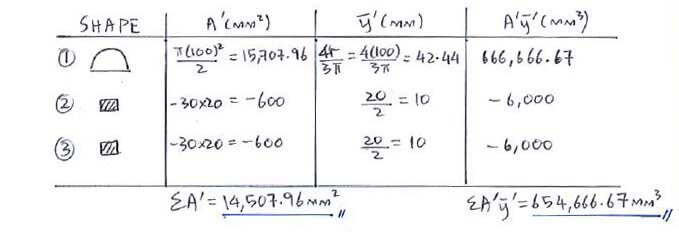 SHAPE A'(mm²) ȳ'(mm) A'ȳ'(mm³)
① π(100)²/2 = 15,707.96 4r/3π = 4(100)/3π = 42.44 666,666.67
② -30x20 = -600 20/2 = 10 -6,000
③ -30x20 = -600 20/2 = 10 -6,000
ΣA' = 14,507.96mm² ΣA'ȳ' = 654,666.67mm³